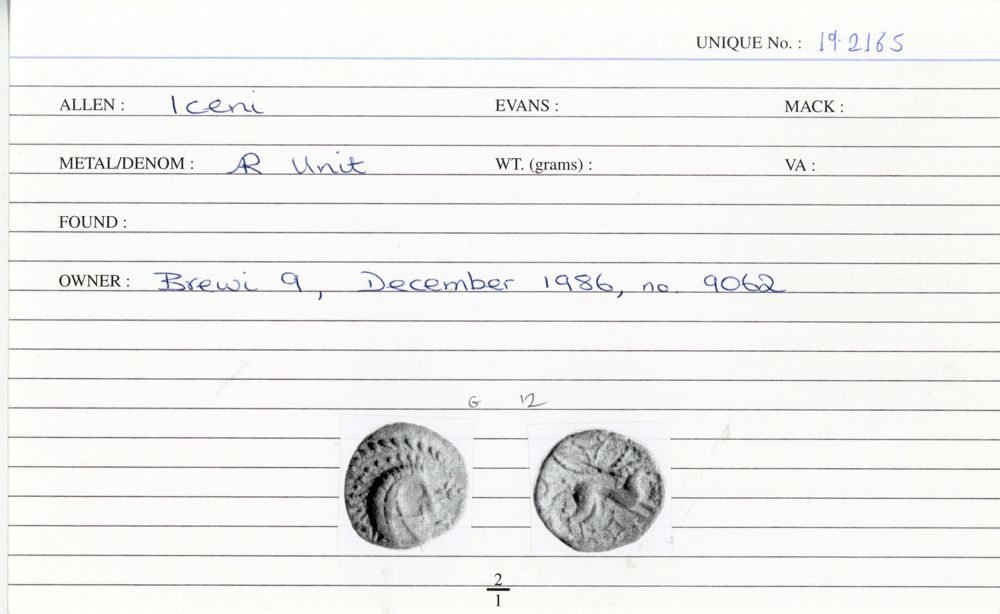 UNIQUE No. : 19.2165
ALLEN : Iceni EVANS : MACK :
METAL/DENOM : AR Unit WT. (grams) : VA :
FOUND :
OWNER : Brewi 9, December 1986, no. 9062
G 12
2
1